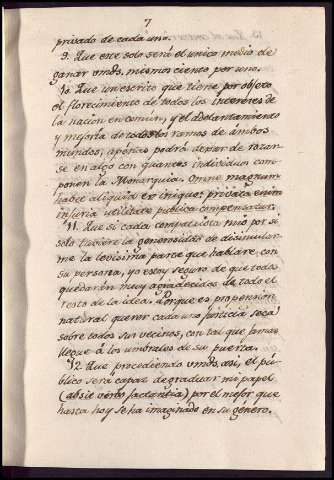 7
privado de cada uno.
9. Que este solo será el unico medio de
ganar vmds. mismos ciento por uno.
10. Que un escrito que tiene por objeto
el florecimiento de todos los intereses de
la nacion en comun, y el adelantamiento
y mejoria de todos los ramos de ambos
mundos, apenas podrá dejar de rozar-
se en algo con quantos individuos com-
ponen la Monarquia. Omne magnum
habet aliquid ex iniquo: privata enim
injuria utilitate publica compensatur.
11. Que si cada compatriota mio por sí
solo tuviere la generosidad de disimular-
me la levisima parte que hablare, con
su persona, yo estoy seguro de que todos
quedarán muy agradecidos de todo el
resto de la idea. Porque es propension
natural querer cada uno justicia seca
sobre todos sus vecinos, con tal que jamas
llegue á los umbrales de su puerta.
12. Que procediendo vmds. asi, el pú-
blico será capaz de graduar mi papel
(absit verbo jactantia) por el mejor que
hasta hoy se ha imaginado en su género.